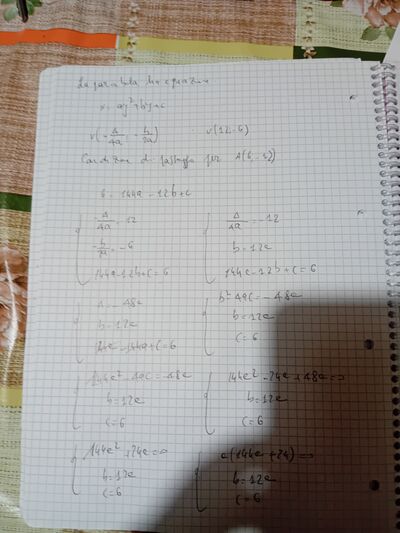 La parabola ha equazione
x = ay²+by+c
V(-Δ/4a; -b/2a) V(12;-6)
Condizione di passaggio per A(6;
6 = 144a - 12b + c
-Δ/4a = 12
-b/2a = -6
144a-12b+C=6
Δ/4a = -12
b = 12a
144a-12b+C=6
Δ = -48a
b=12a
-144a+C=6
b²-4ac = -48a
b=12a
C=6
144a²-4ac = -48a
b=12a
C=6
144a²-24a+48a=0
b=12a
C=6
144a²+24a=0
b=12a
C=6
a(144a+24)=0
b=12a
C=6